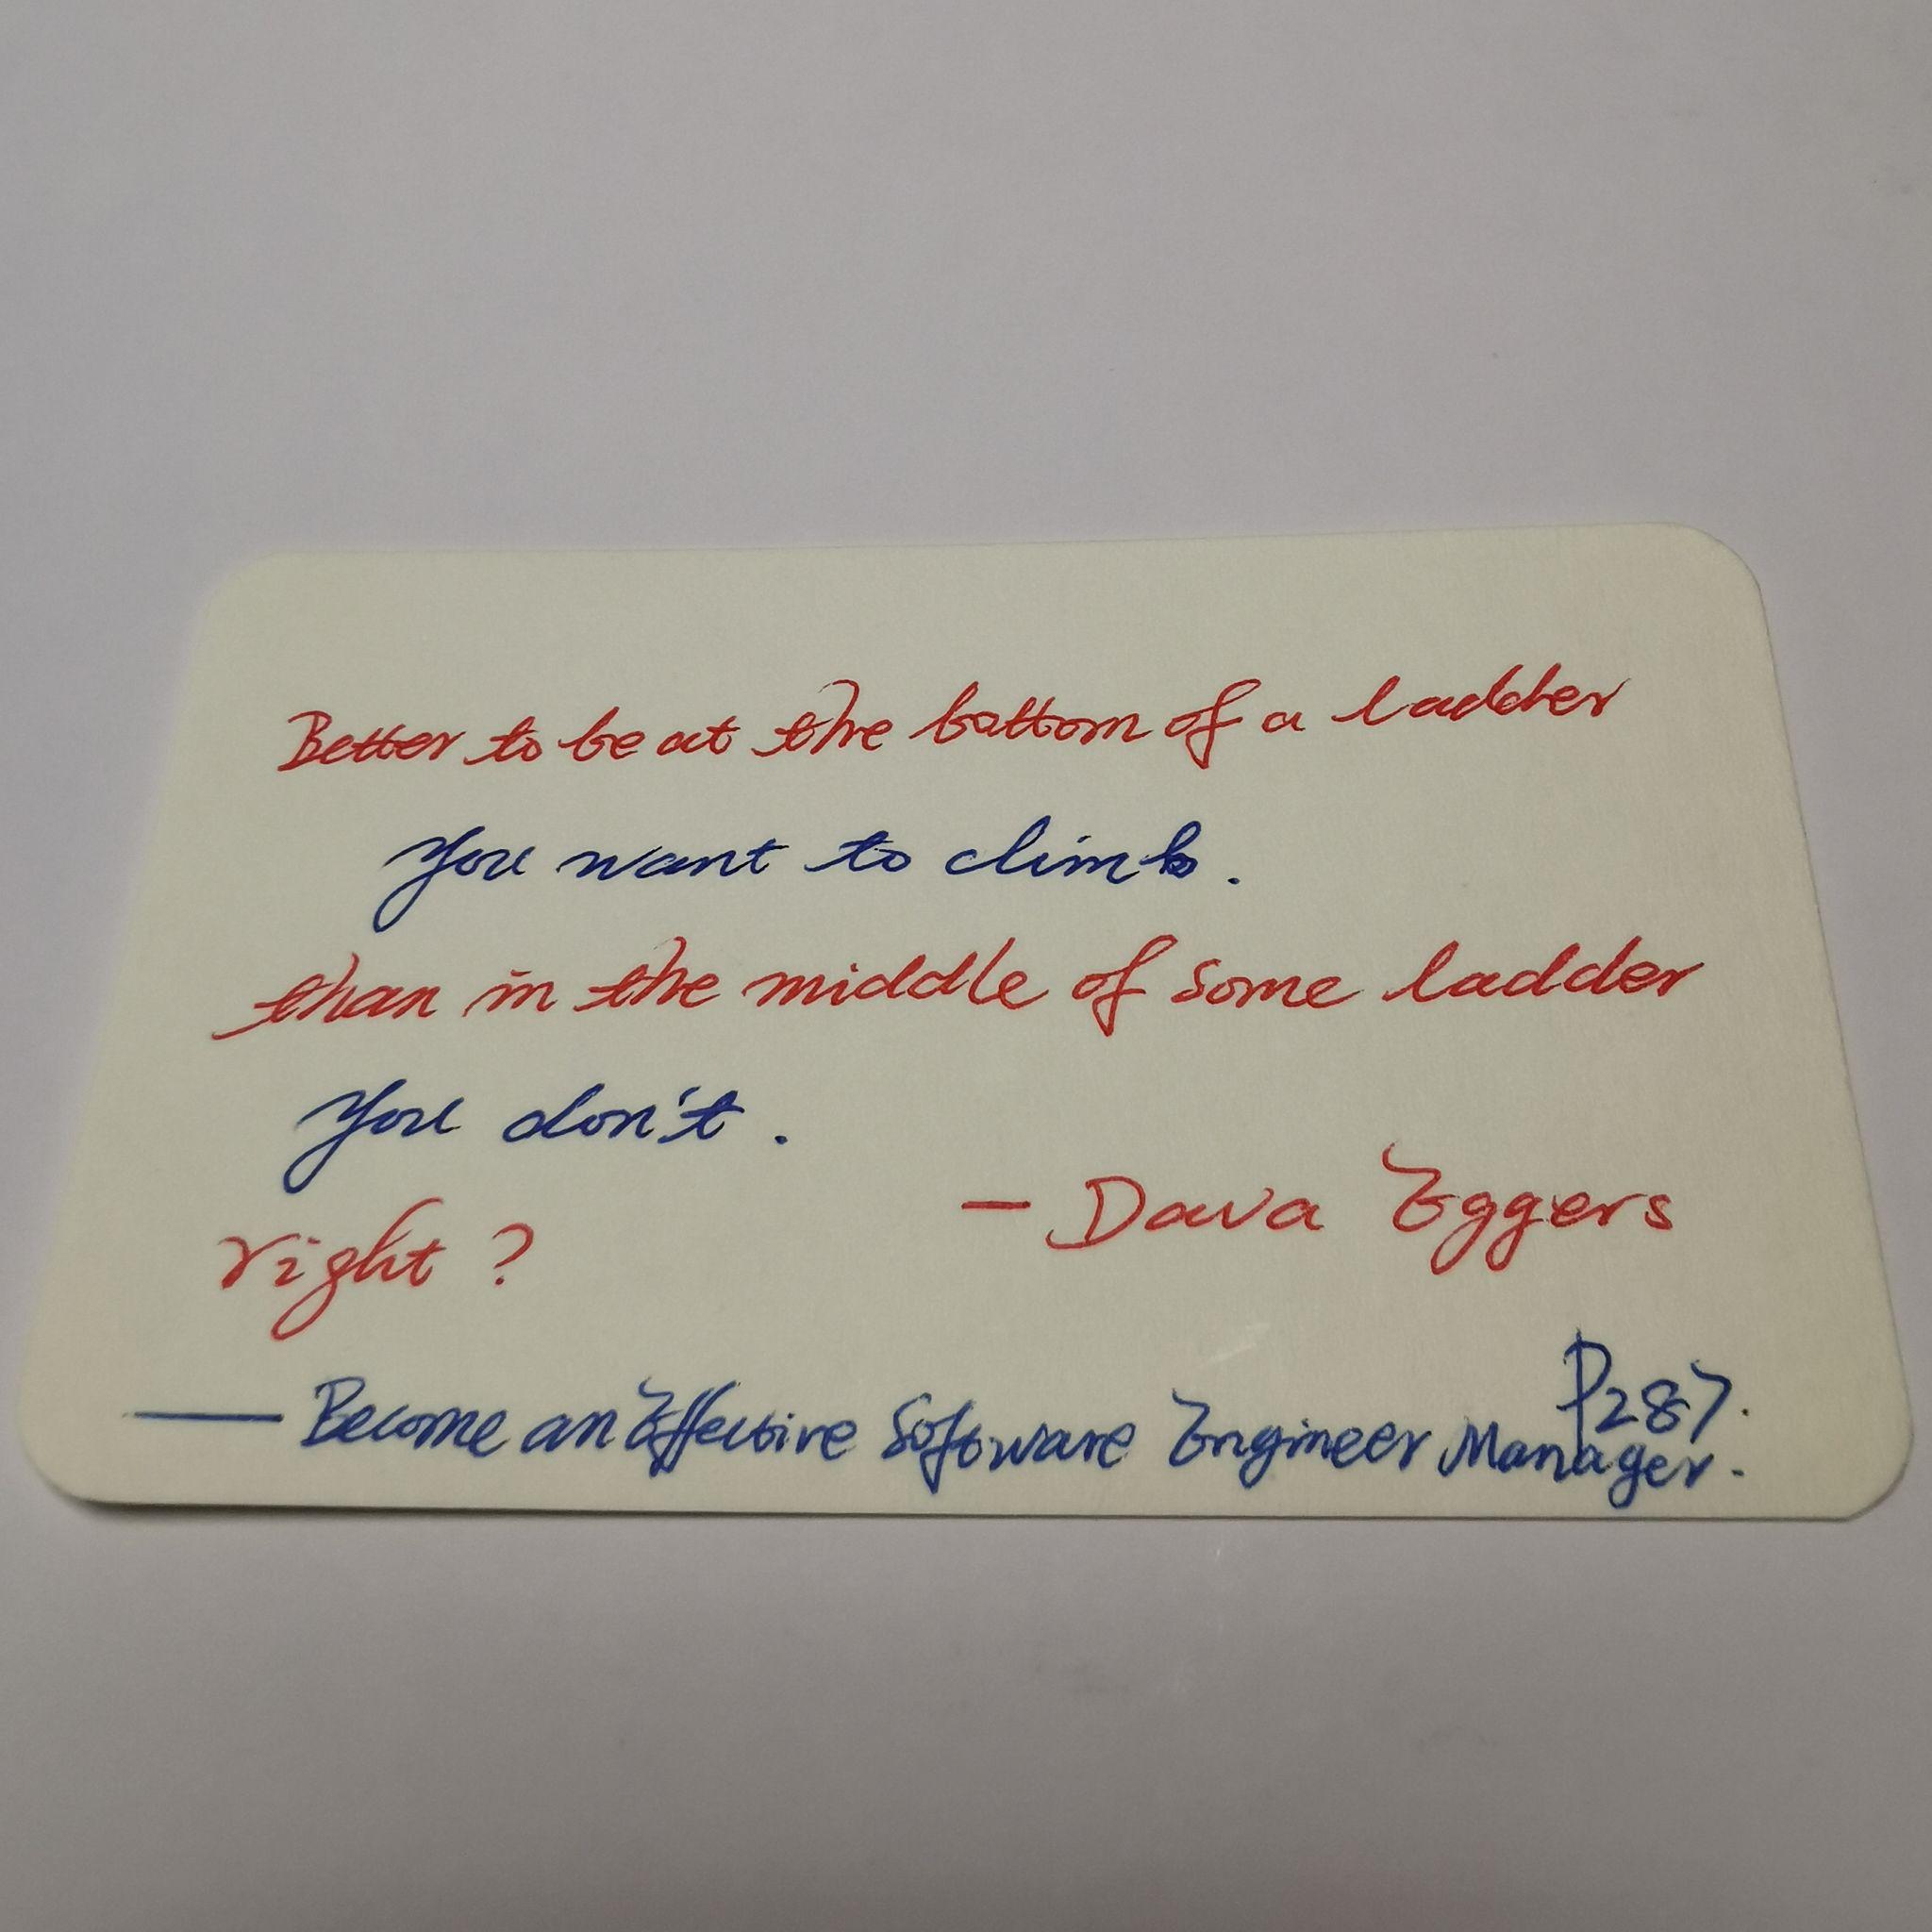 Better to be at the bottom of a ladder
you want to climb.
than in the middle of some ladder
you don't.
right?
— Dava Eggers
P287.
— Become an Effective Software Engineer Manager.